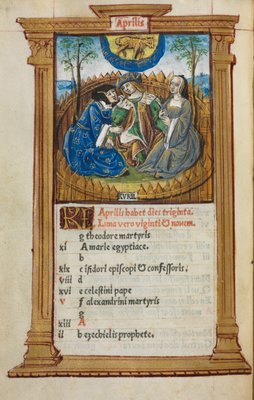 Aprilis
XXXII
KL Aprilis habet dies triginta.
Luna vero viginti & novem.
g theodore martyris
xi A marie egyptiace.
b
xix c isidori episcopi & confessoris.
viii d
xvi e celestini pape
v f alexandrini martyris
g
xiii A
ii b ezechielis prophete.